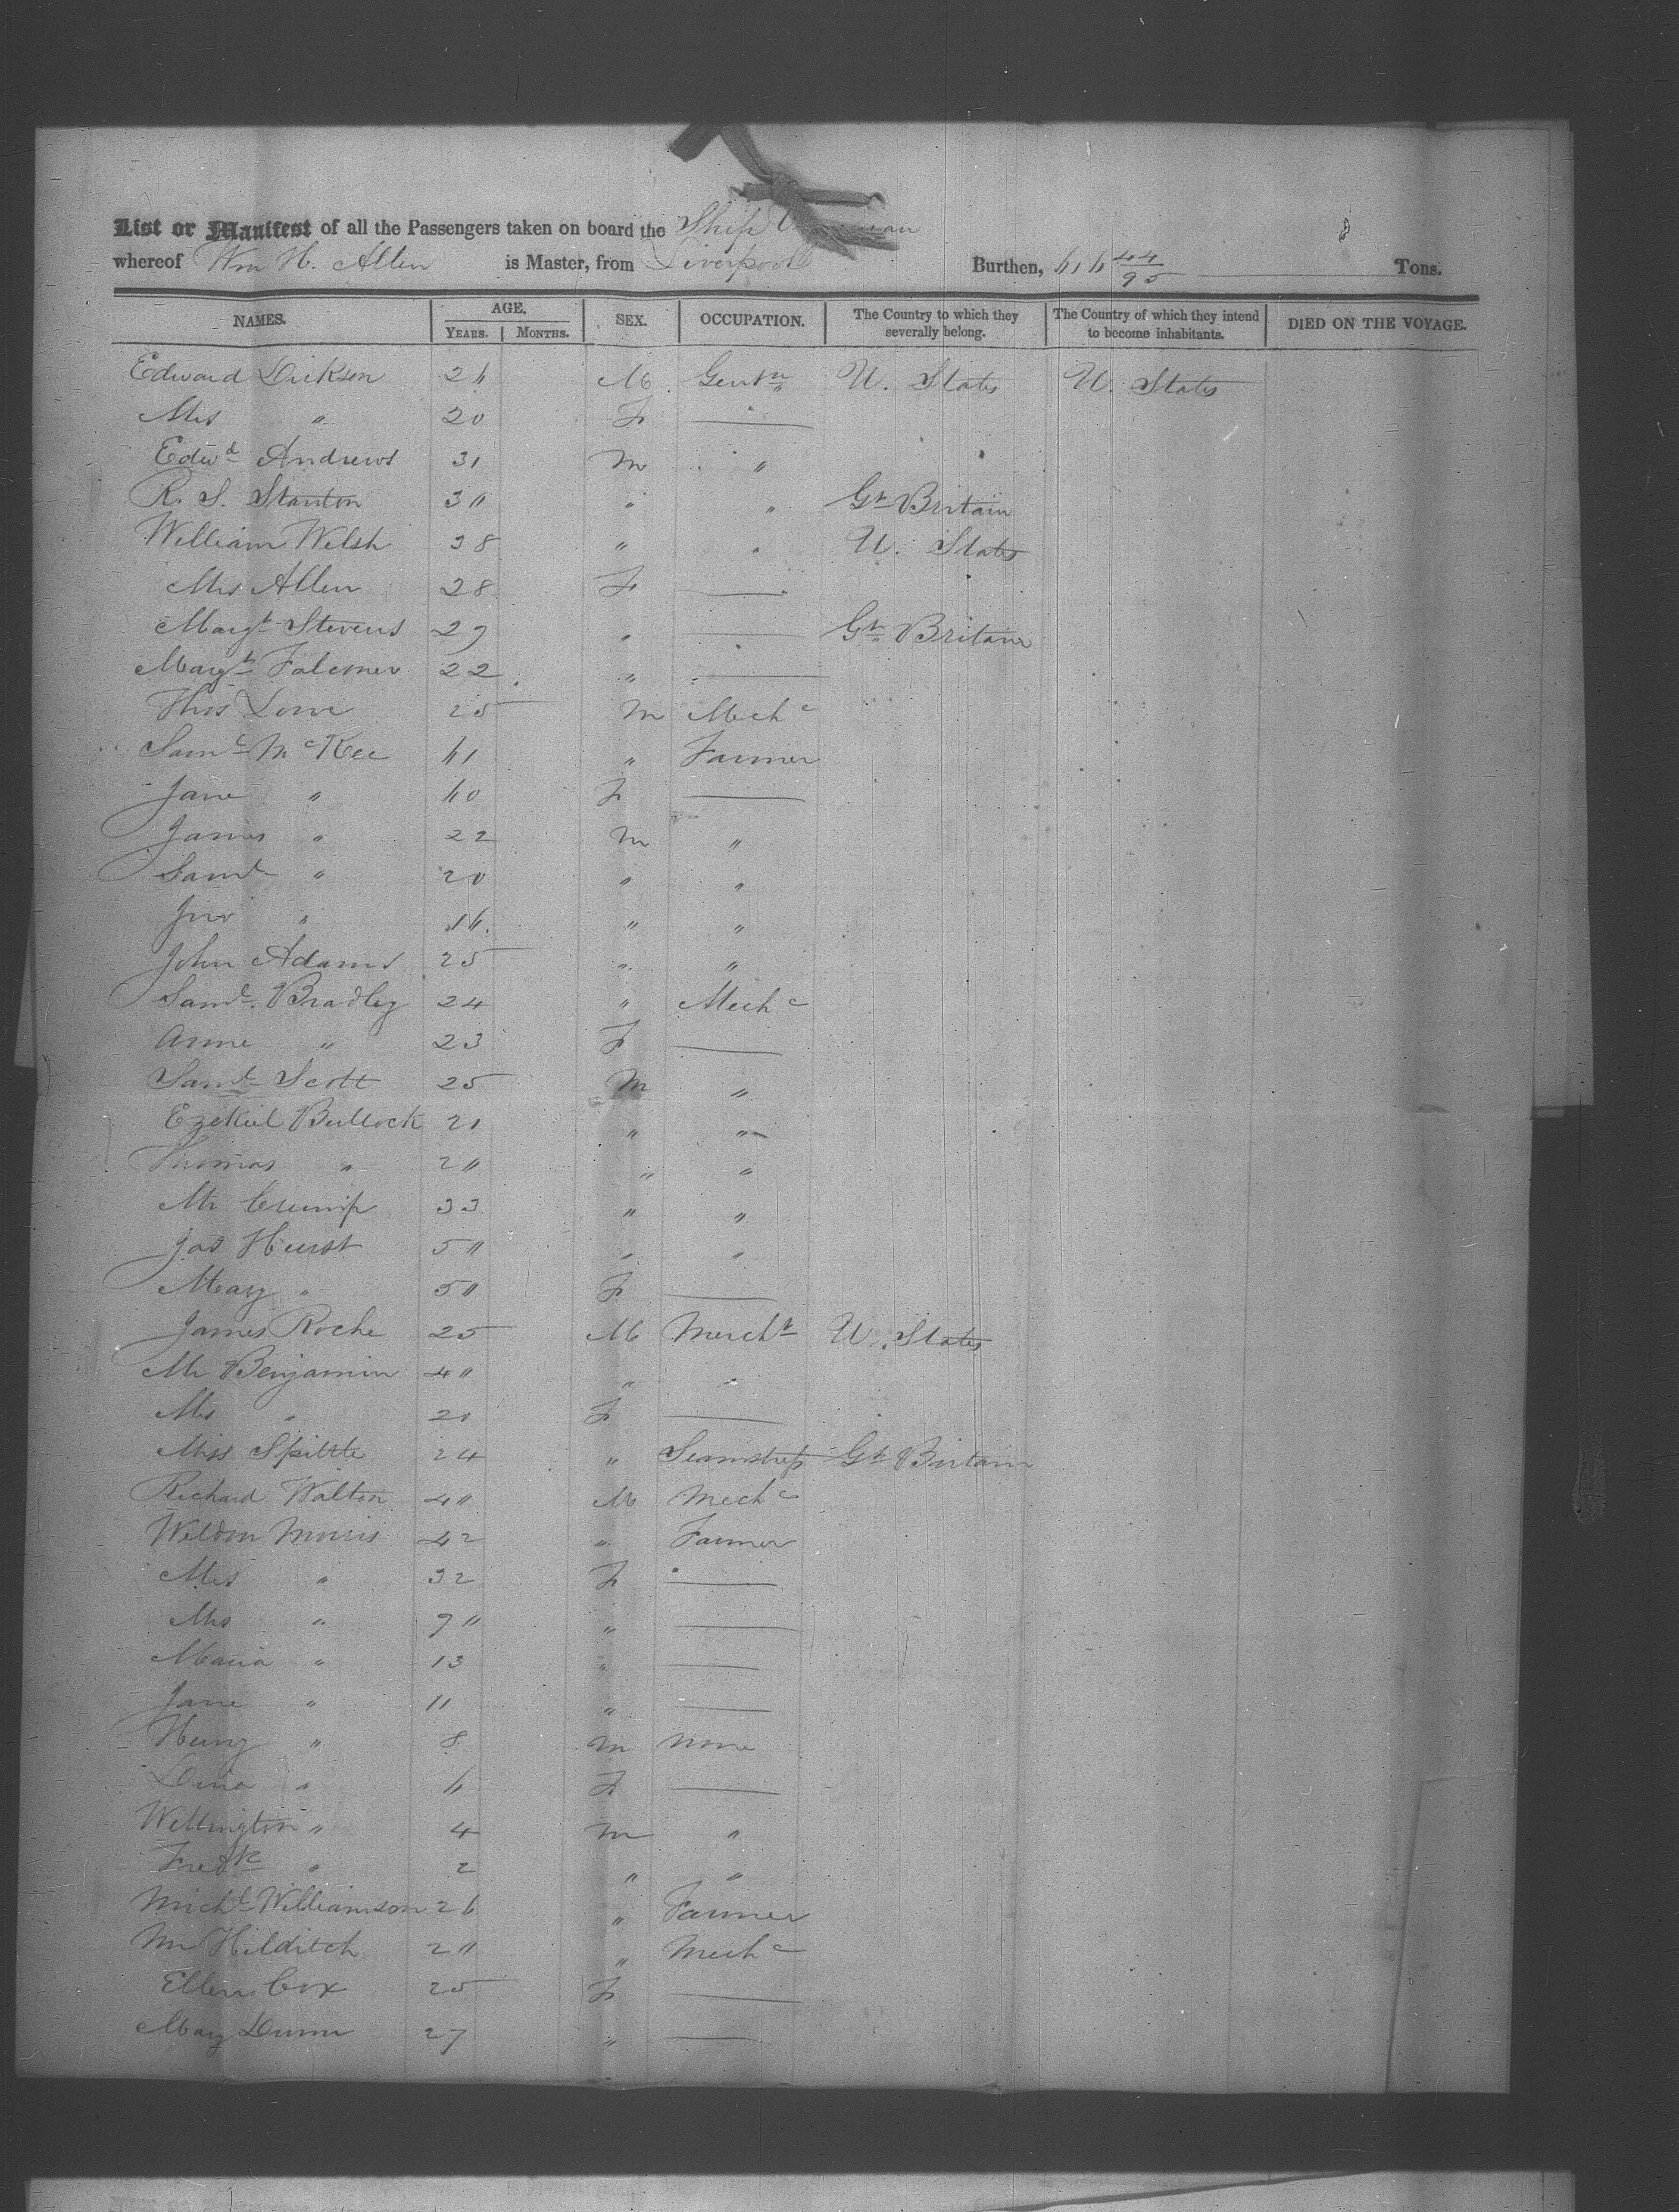 List or Manifest of all the Passengers taken on board the Ship
whereof Wm H. Allen is Master, from Liverpool Burthen, 616 44/95 Tons.
NAMES. AGE. YEARS. MONTHS. SEX. OCCUPATION. The Country to which they severally belong. The Country of which they intend to become inhabitants. DIED ON THE VOYAGE.
Edward Dickson 26 M Gentn U. States U. States
Mrs " 20 F —
Edwd Andrews 31 M "
R. S. Stanton 30 " " Gt Britain
William Welsh 38 " " U. States
Mrs Allen 28 F —
Margt Stevens 27 " — Gt Britain
Margt Falconer 22 " —
Thos Lowe 25 M Mechc
Saml McKee 61 " Farmer
Jane " 60 F —
James " 22 M "
Saml " 20 " "
Jno " 16 " "
John Adams 25 " "
Saml Bradley 24 " Mechc
Anne " 23 F —
Saml Scott 25 M "
Ezekiel Bullock 21 " "
Thomas " 20 " "
Mr Crump 33 " "
Jas Hurst 50 " "
Mary " 50 F —
James Roche 25 M Mercht U. States
Mr Benjamin 40 " "
Mrs " 20 F —
Miss Spittle 24 " Seamstress Gt Britain
Richard Walton 40 M Mechc
Weldon Morris 42 " Farmer
Mrs " 32 F —
Mrs " 70 " —
Maria " 13 " —
Jane " 11 " —
Henry " 8 M None
" 6 F —
Wellington " 4 M "
Fredk " 2 " "
Michl Williamson 26 " Farmer
Mr Hilditch 20 " Mechc
Ellen Cox 25 F —
Mary Dunn 27 " —